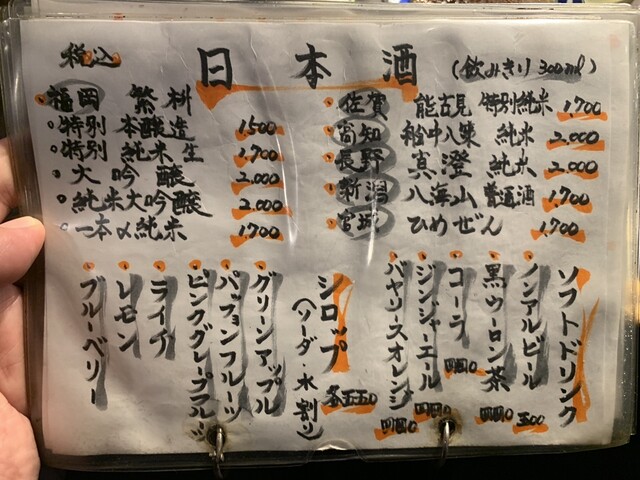 税込
日本酒
(飲みきり 300ml)
福岡 繁桝
特別 本醸造 1500
特別 純米 生 1,700
大吟醸 2,000
純米大吟醸 2,000
一本〆純米 1,700
佐賀 能古見 特別純米 1,700
高知 船中八策 純米 2,000
長野 真澄 純米 2,000
新潟 八海山 普通酒 1,700
宮城 ひめぜん 1,700
ソフトドリンク
ノンアルビール 五〇〇
黒ウーロン茶 四四〇
コーラ 四四〇
ジンジャーエール 四四〇
バヤリースオレンジ 四四〇
シロップ
(ソーダ・水割り) 各五五〇
グリーンアップル
パッションフルーツ
ピンクグレープフルーツ
ライチ
レモン
ブルーベリー